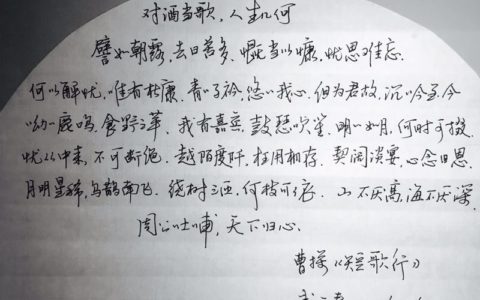 对酒当歌,人生几何
譬如朝露,去日苦多.慨当以慷,忧思难忘.
何以解忧,唯有杜康.青々子衿,悠々我心,但为君故,沉吟至今
呦々鹿鸣,食野之苹.我有嘉宾,鼓瑟吹笙.明々如月,何时可掇.
忧从中来,不可断绝.越陌度阡,枉用相存.契阔谈宴,心念旧恩.
月明星稀,乌鹊南飞.绕树三匝,何枝可依.山不厌高,海不厌深.
周公吐哺,天下归心.
曹操《短歌行》